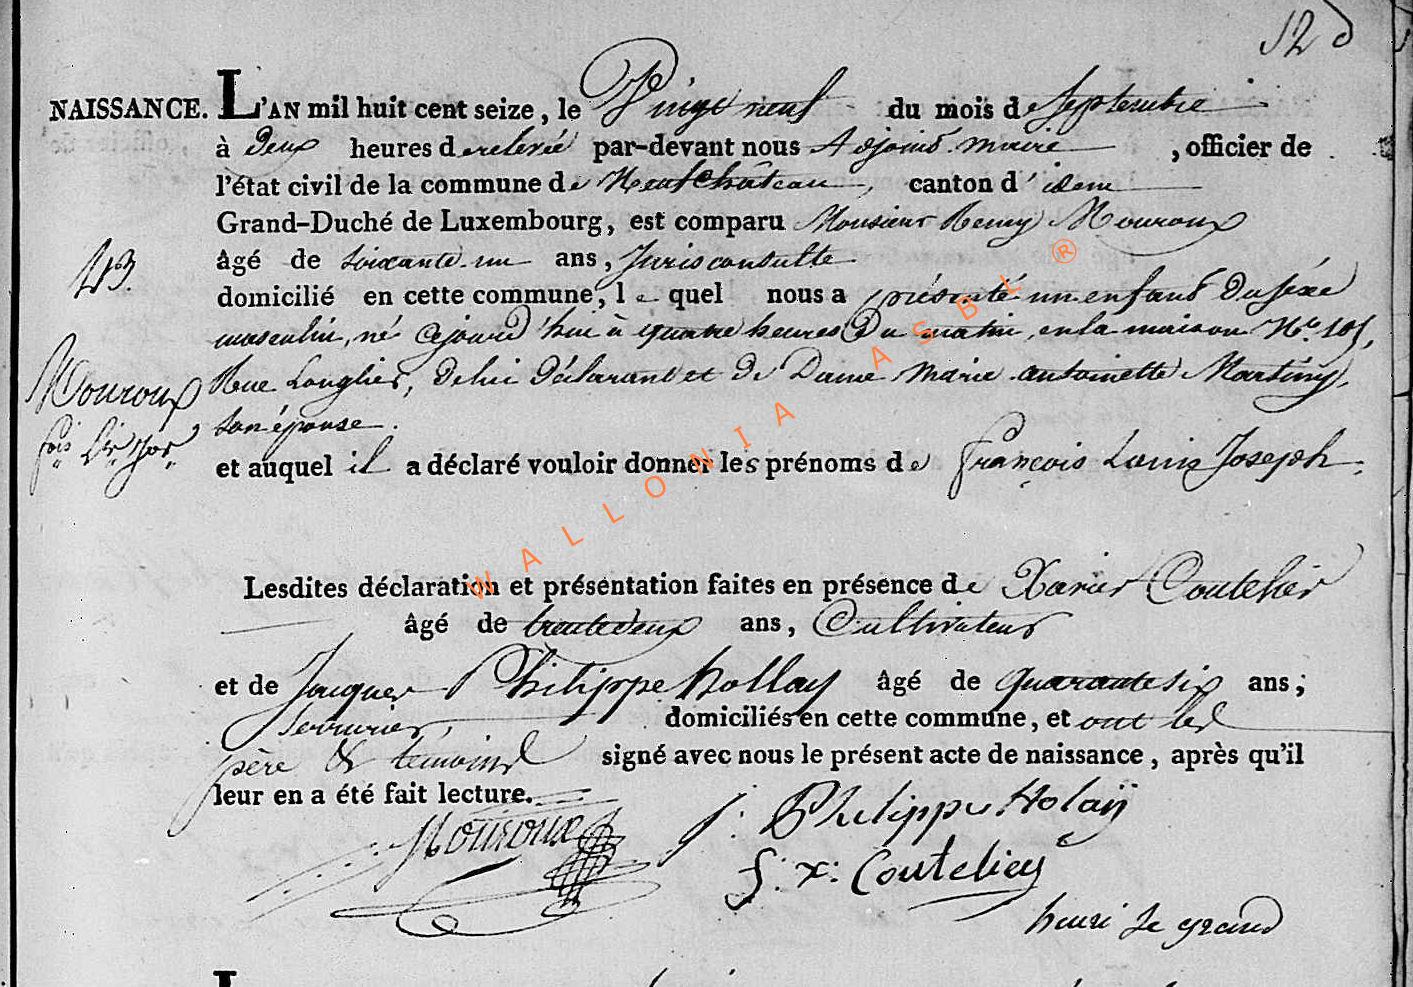 12
NAISSANCE. L'AN mil huit cent seize, le Vingt neuf du mois de Septembre
à deux heures de relevée par-devant nous Adjoint-maire, officier de
l'état civil de la commune de Neufchâteau, canton d'idem
Grand-Duché de Luxembourg, est comparu Monsieur Remy Mouroux
43.
âgé de soixante-un ans, Jurisconsulte
domicilié en cette commune, lequel nous a présenté un enfant du sèxe
masculin, né cejourd'hui à quatre heures du matin, en la maison N.º 105,
Mouroux
Rue Longlier, de lui déclarant et de Dame Marie Antoinette Martiny,
son épouse.
et auquel il a déclaré vouloir donner les prénoms de François Louis Joseph.
Lesdites déclaration et présentation faites en présence de Xavier Coutelier
âgé de trente deux ans, Cultivateur
et de Jacques Philippe Hollay âgé de quarante six ans,
Serrurier, domiciliés en cette commune, et ont les
père & témoins signé avec nous le présent acte de naissance, après qu'il
leur en a été fait lecture.
Mouroux
j: Philippe Holaÿ
f: x: Coutelier
henri le grand
WALLONIA ASBL ®